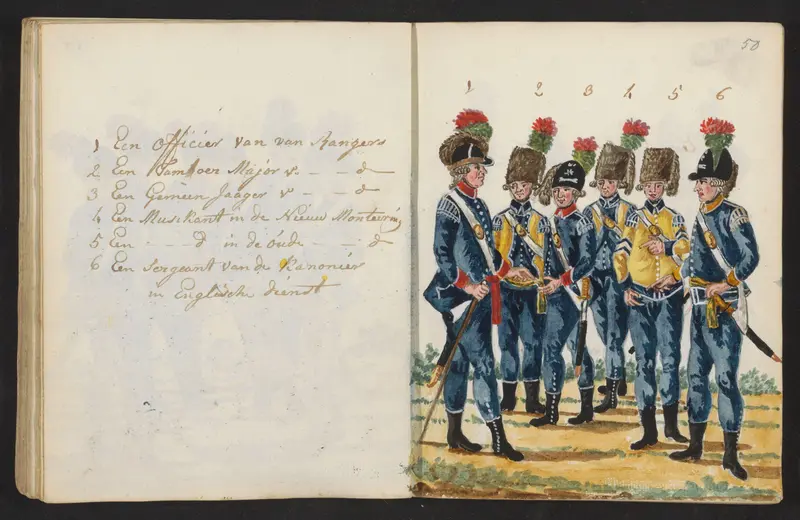 1 Een officier van van Rangers
2 Een Tamboer Major v. - - d
3 Een Gemeen Jaager v - - d
4 Een Musikant in de Nieuw Monteurin
5 Een - - d in de oude - - d
6 Een Sergeant van de Kanoniers
in Englische dienst
50
1 2 3 4 5 6